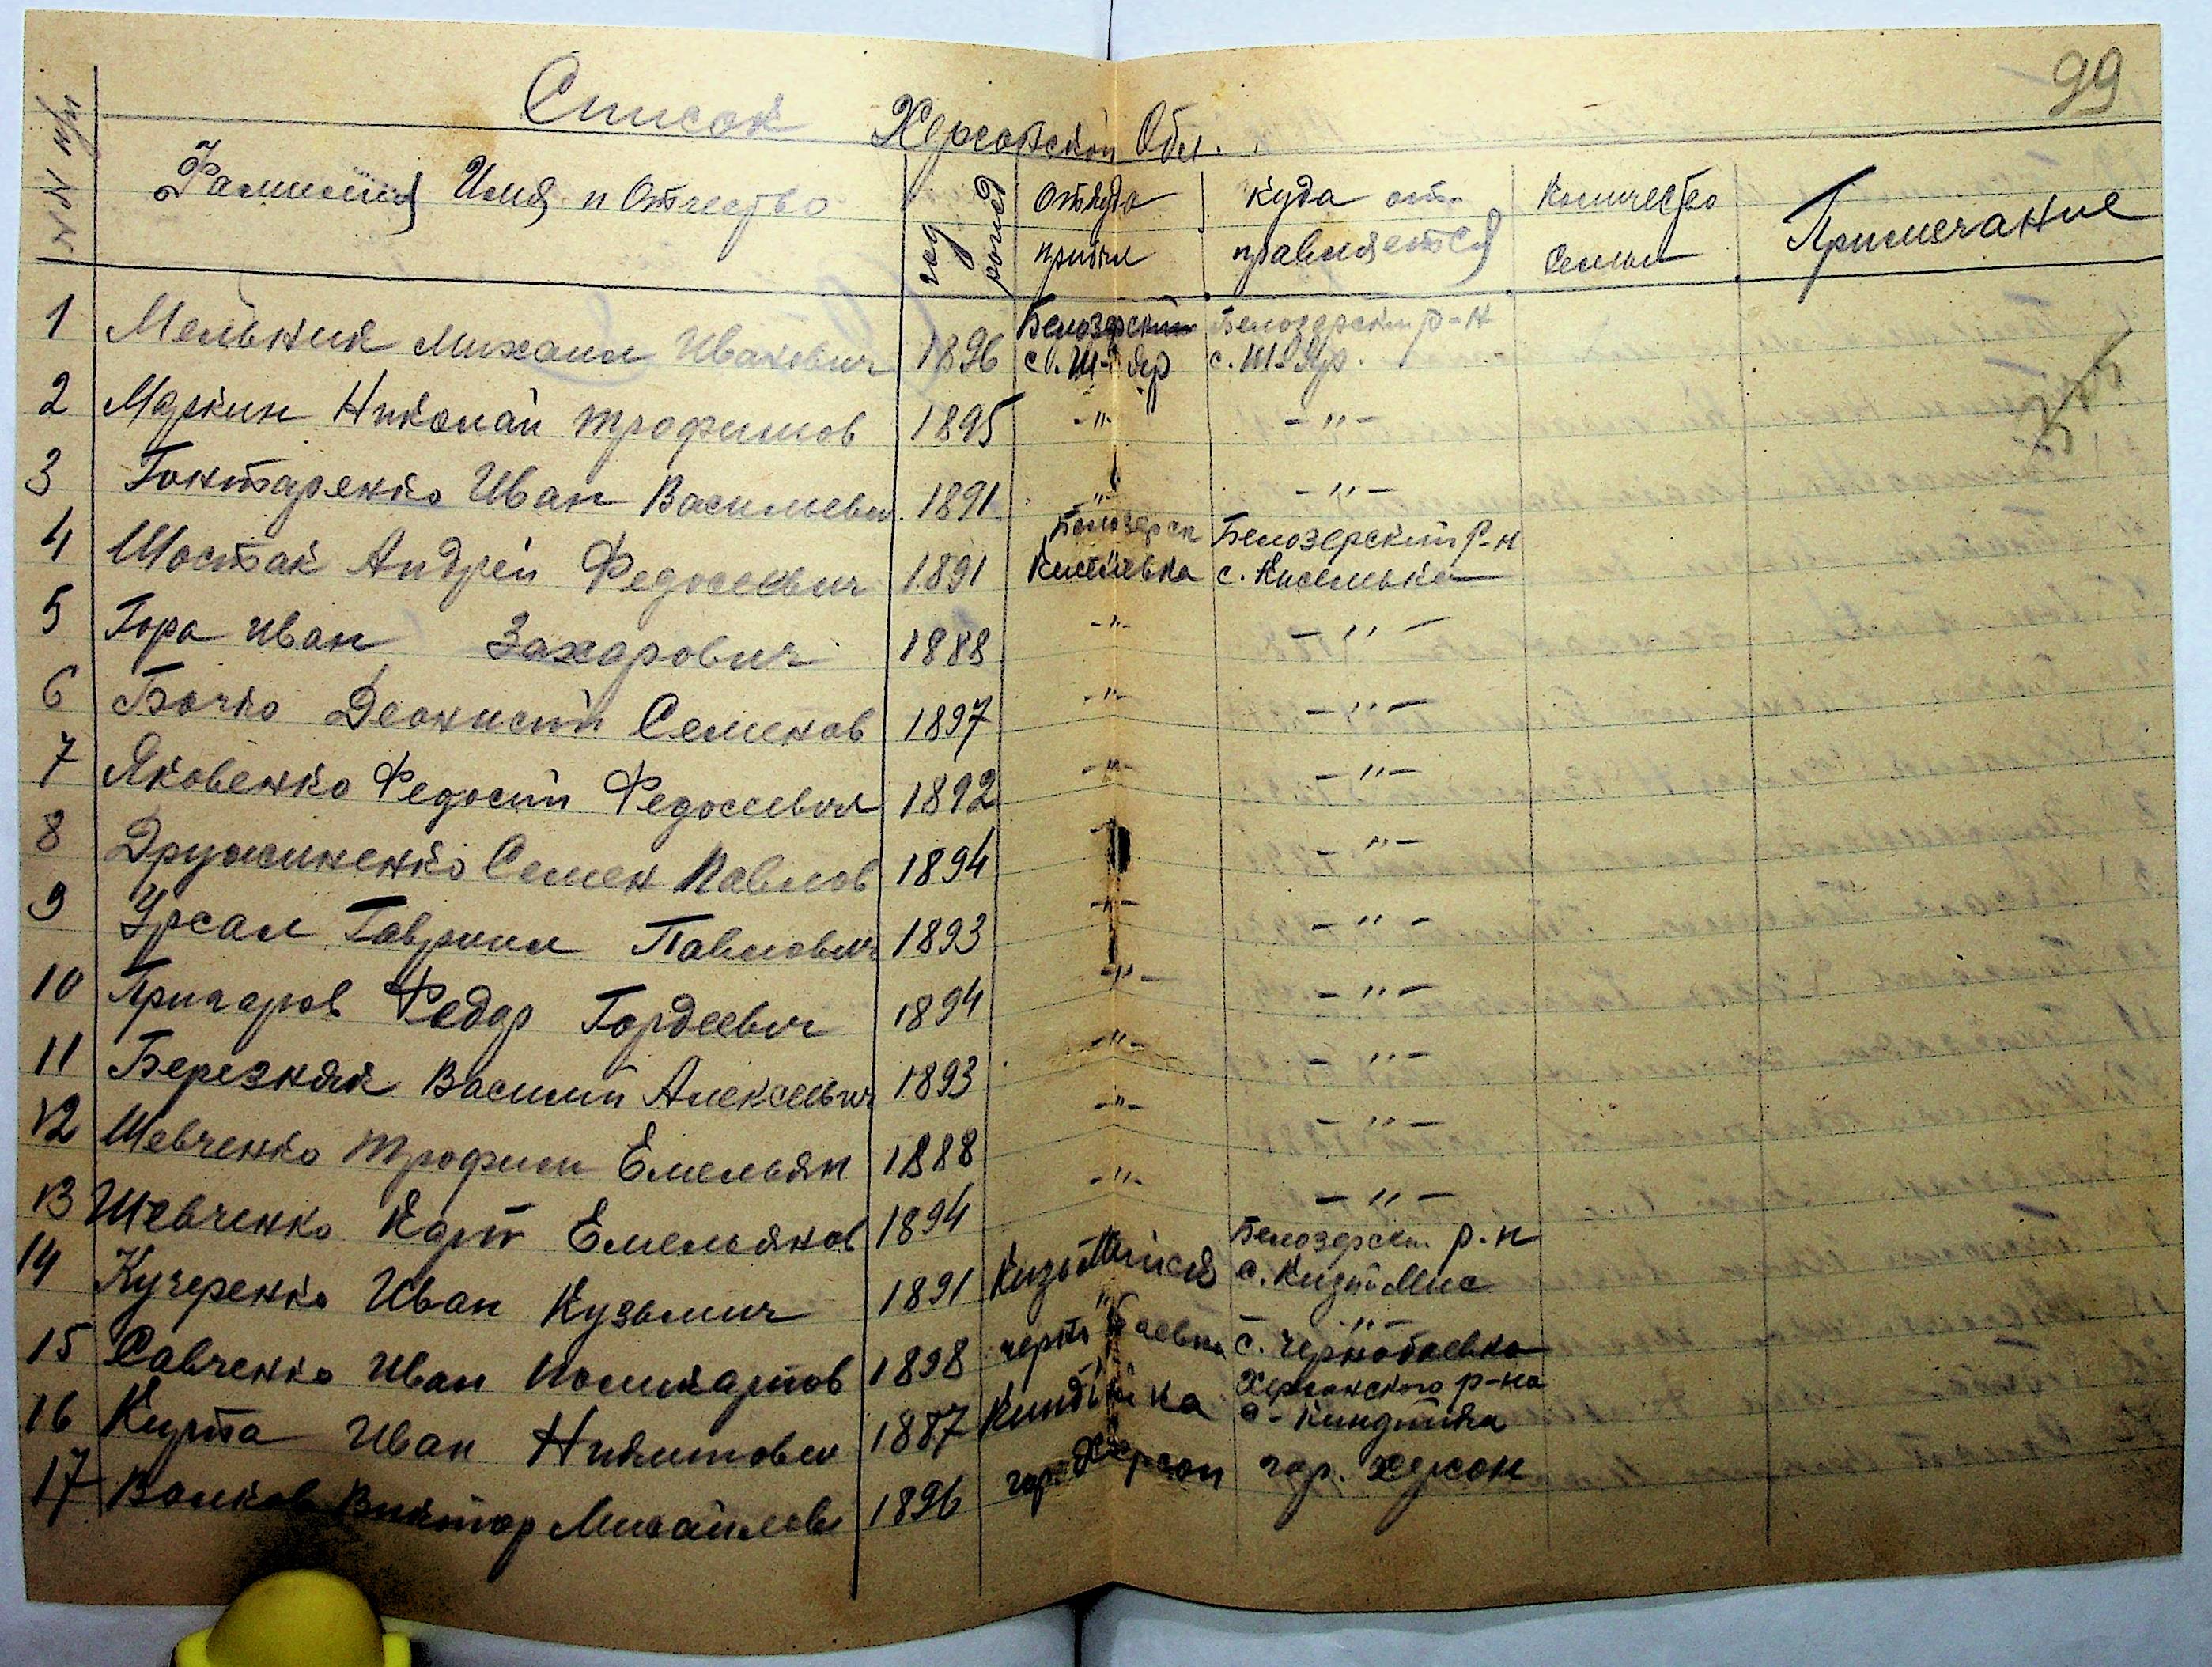 99
Список Херсонской Обл.
№№ п/п Фамилия Имя и Отчество год рожд откуда прибыл куда отправляется Количество семьи Примечание
Белозерский Белозерский р-н
1 Мельник Михаил Иванович 1896 с. Ш-Яр с. Ш-Яр.
2 Маркин Николай Трофимов 1895 -"- -"-
3 Гонтаренко Иван Васильевич 1891 " -"-
Белозерск Белозерский р-н
4 Шостак Андрей Федосеевич 1891 Киселевка с. Киселевка
5 Гора Иван Захарович 1888 -"- -"-
6 Бочко Деонисий Семенов 1897 -"- -"-
7 Яковенко Федосий Федосеевич 1892 -"- -"-
8 Дружиненко Семен Павлов 1894 -"-
9 Урсал Гавриил Павлович 1893 -"- -"-
10 Федор Гордеевич 1894 -"- -"-
11 Березняк Василий Алексеевич 1893 -"- -"-
12 Шевченко Трофим Емельян 1888 -"- -"-
13 Шевченко Карп Емельянов 1894 -"- -"-
Белозерск р-н
14 Кучеренко Иван Кузьмич 1891 с. Кизий Мис
" -"-
15 Савченко Иван Поликарпов 1898 с. Чернобаевка
Херсонского р-на
16 Курта Иван Никитович 1887 Киндийка с. Киндийка
17 Волков Виктор Михайлов 1896 гор. Херсон гор. Херсон